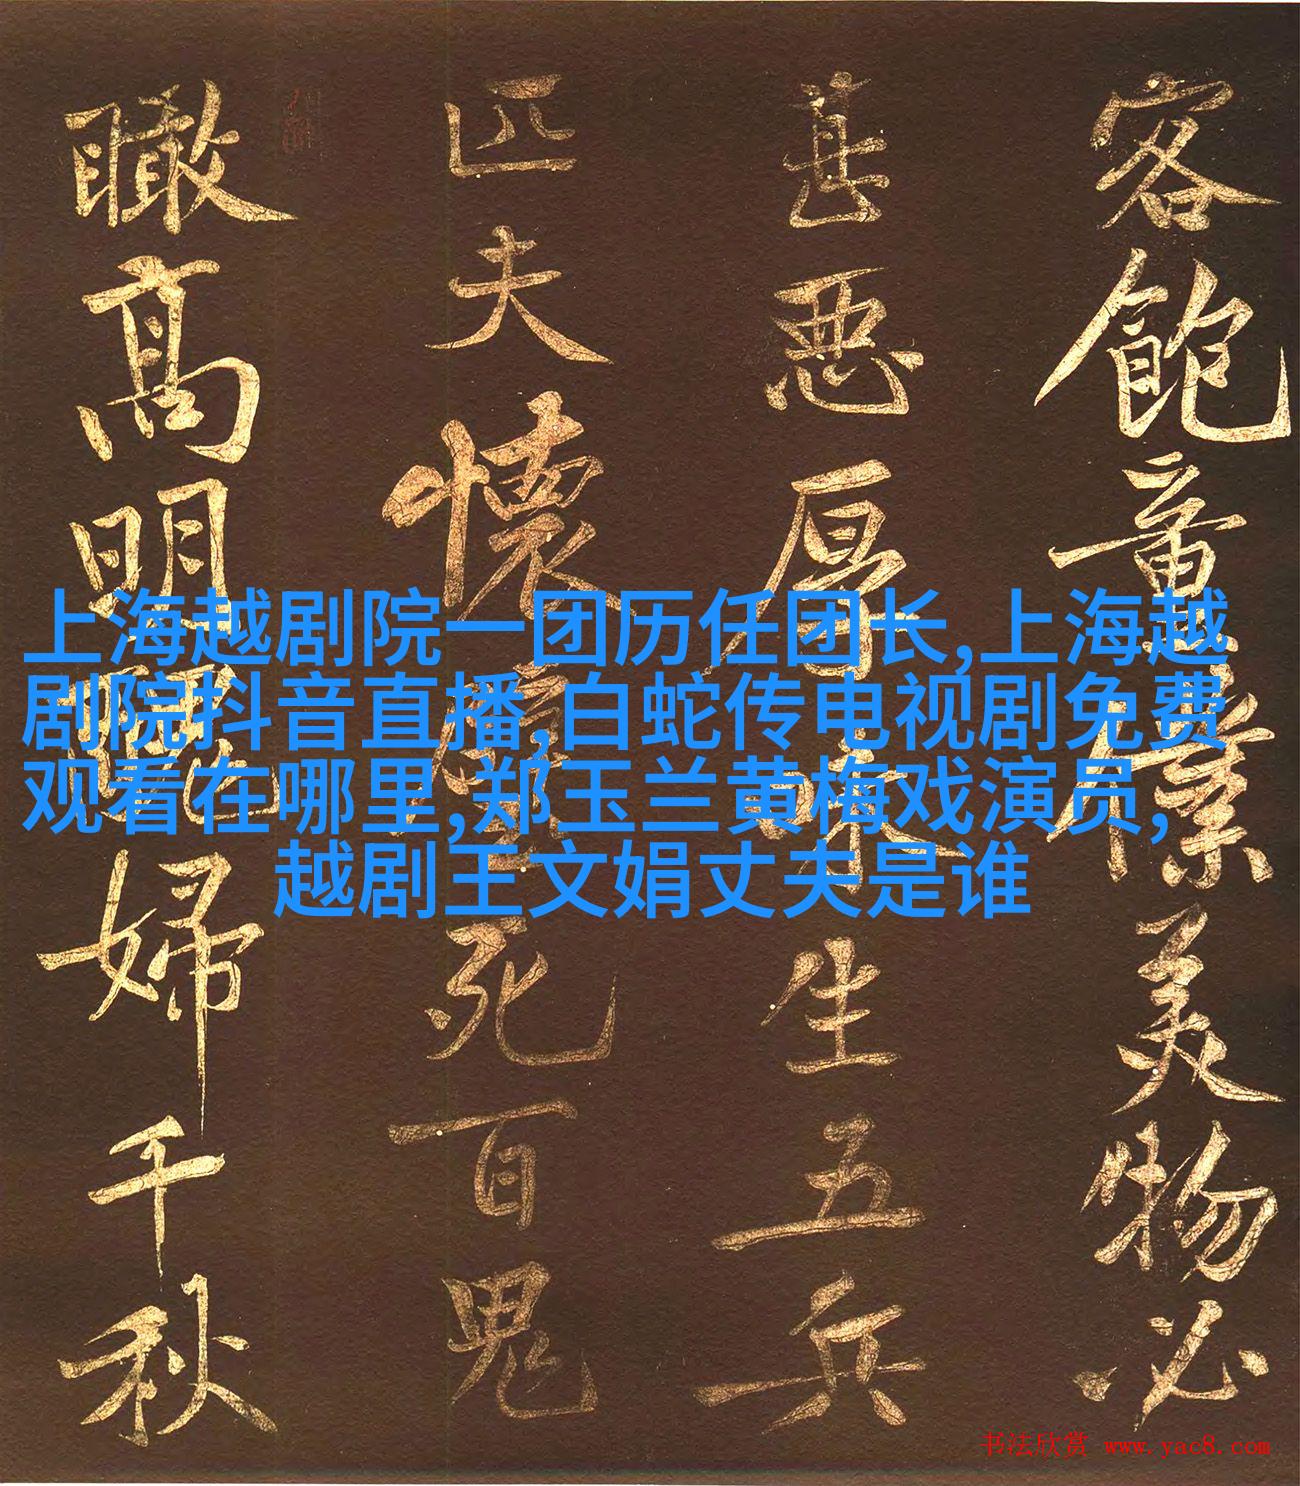 客飽童僕美物必
甚惡厚味生五兵
匹夫懷璧死百鬼
瞰高明醜婦千秋
上海越剧院一团历任团长,上海越
剧院抖音直播,白蛇传电视剧免费
观看在哪里,郑玉兰黄梅戏演员,
越剧王文娟丈夫是谁
书法欣赏 www.yac8.com